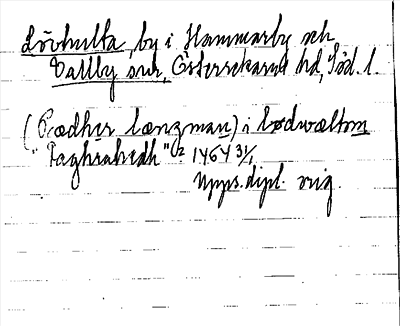 Lövhulta, by i Hammarby och
Vallby snr, Österrekarne hd, Söd. l.
(Pædher lænzman) i lødwæltom
"Faghrahedh" 1464 31/1
Upps. dipl. orig.